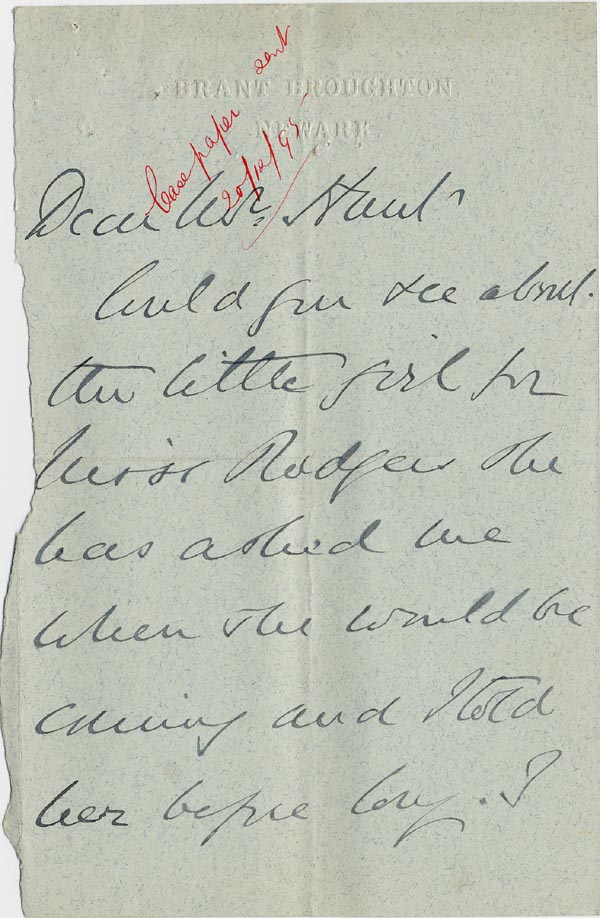 BRANT BROUGHTON,
NEWARK
Case paper sent
20/12/95
Dear Mr. Hunt
Could you see about
the little girl for
Miss Rodgers she
has asked me
when she would be
coming and I told
her before long. I